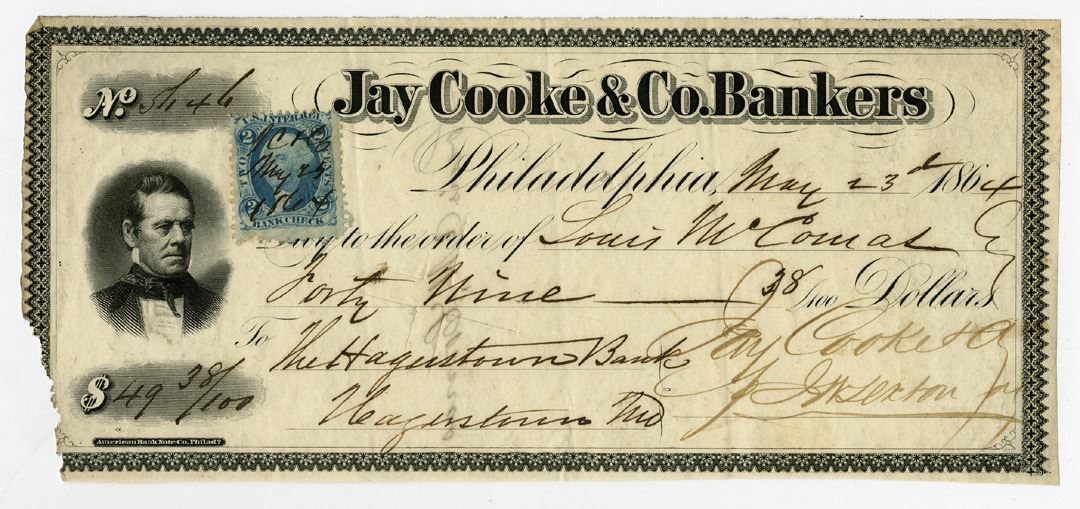 Nº 46
Jay Cooke & Co. Bankers
U.S. INTER. REV.
TWO CENTS
2 2
May 23
2 2
BANK CHECK
Philadelphia, May 23d 1864
Pay to the order of Louis McComas
Forty Nine 38/100 Dollars
To The Hagerstown Bank Jay Cooke & Co
$ 49 38/100 Hagerstown Md
American Bank Note Co. Philada.